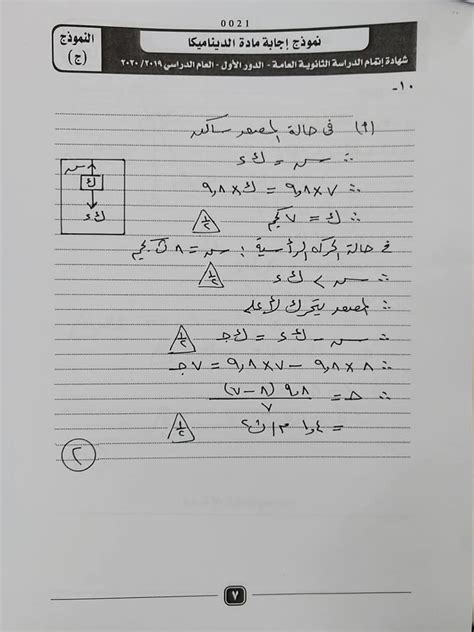 0021
نموذج إجابة مادة الديناميكا
النموذج (ج)
شهادة إتمام الدراسة الثانوية العامة - الدور الأول - العام الدراسى ٢٠١٩/ ٢٠٢٠
١٠-
(P) فى حالة المصعد ساكن
∴ س = كء
∴ ٧ × ٩,٨ = ك × ٩,٨
∴ ك = ٧ كجم
١/٢
س
ك
كء
فى حالة الحركة الرأسية : س = ٨ ث كجم
∴ س > كء
١/٢
∴ المصعد يتحرك لأعلى
∴ س - كء = كجـ
١/٢
∴ ٨ × ٩,٨ - ٧ × ٩,٨ = ٧ جـ
∴ جـ = ٩,٨ (٨ - ٧) / ٧
= ١,٤ م/ث٢
١/٢
٢
٧